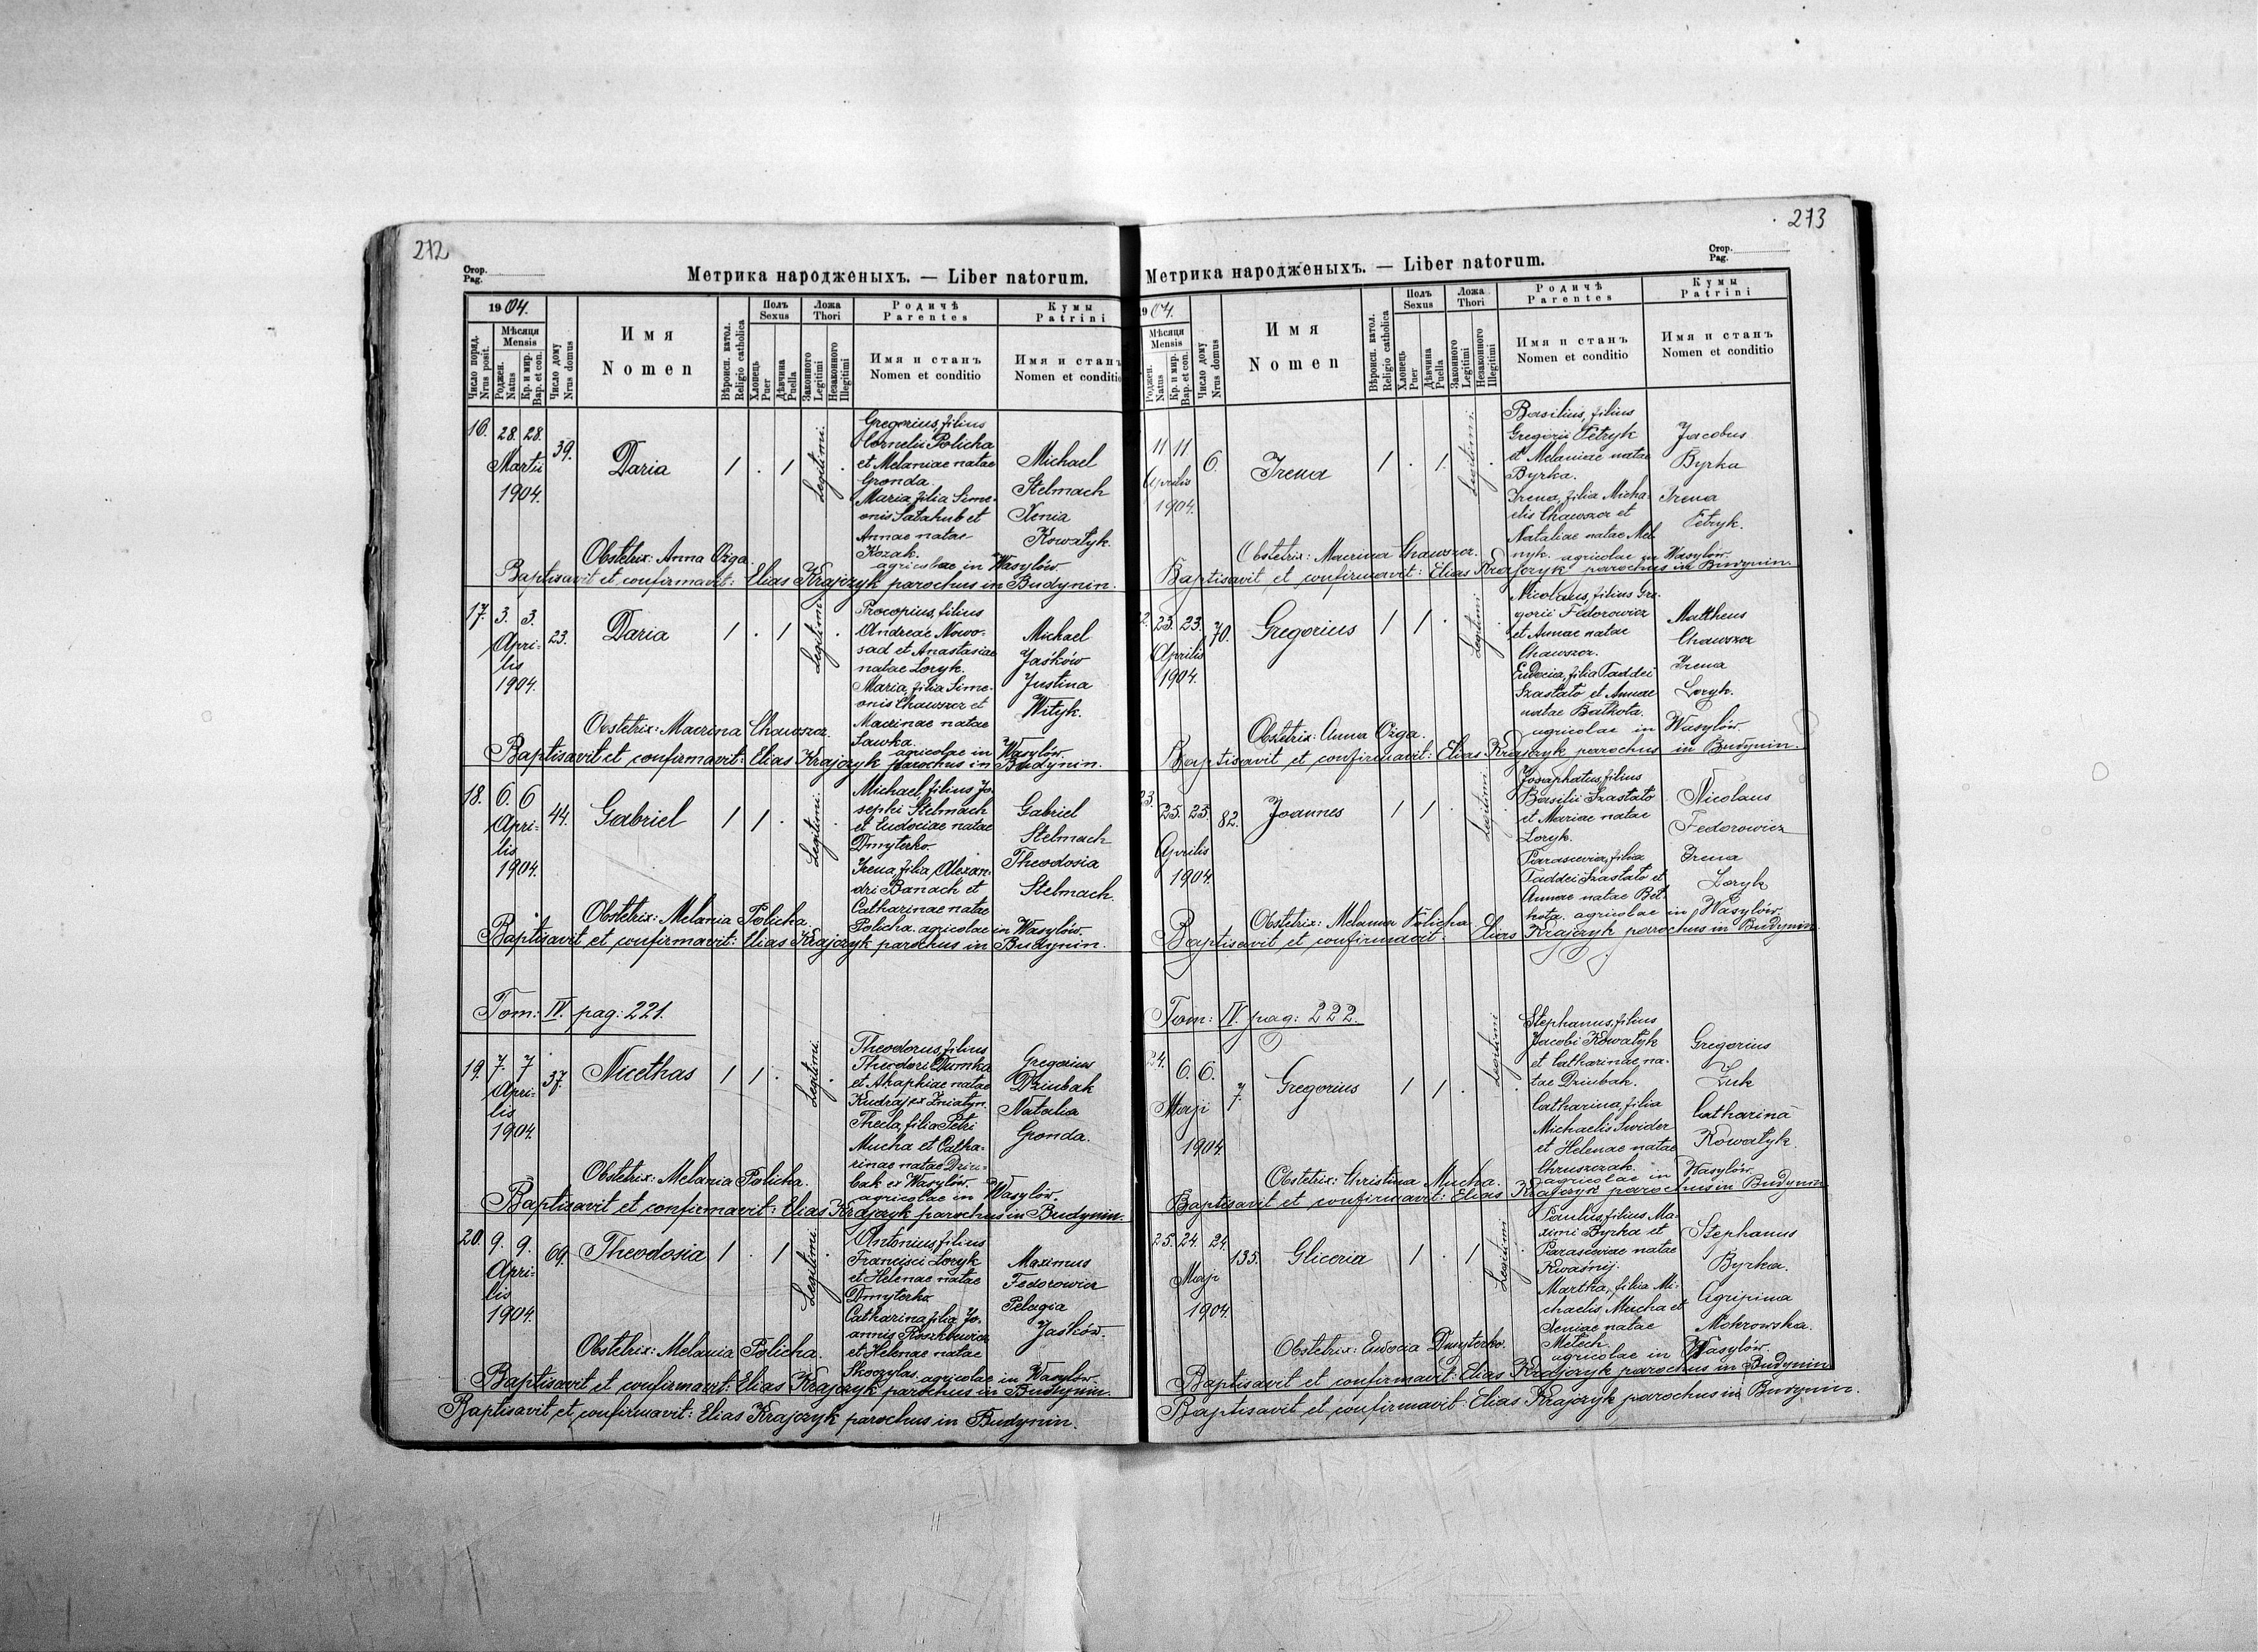 272
Стор.
Pag.
Метрика народженыхъ. — Liber natorum.
1904.
Число поряд.
Nrus posit.
Мѣсяця
Mensis
Роджен.
Natus
Кр. и мир.
Bap. et con.
Число дому
Nrus domus
Имя
Nomen
Вѣроисп. катол.
Religio catholica
Полъ
Sexus
Хлопець
Puer
Дѣвчина
Puella
Ложа
Thori
Законного
Legitimi
Незаконного
Illegitimi
Родичѣ
Parentes
Имя и станъ
Nomen et conditio
Кумы
Patrini
Имя и станъ
Nomen et conditio
16. 28. 28. Martii 1904. 39. Daria 1 . 1 Legitimi. .
Gregorius, filius
Cornelii Policha
et Melaniae natae
Gronda.
Maria, filia Sime-
onis Sałahub et
Annae natae
Kozak.
agricolae in Wasylów.
Michael
Stelmach
Xenia
Kowałyk.
Obstetrix: Anna Ożga.
Baptisavit et confirmavit: Elias Krajczyk parochus in Budynin.
17. 3. 3. Apri-
lis
1904. 23. Daria 1 . 1 Legitimi. .
Procopius, filius
Andreae Nowo-
sad et Anastasiae
natae Loryk.
Maria, filia Sime-
onis Chawszcz et
Macrinae natae
Sawka.
agricolae in Wasylów.
Michael
Jaśków
Justina
Wityk.
Obstetrix: Macrina Chawszcz.
Baptisavit et confirmavit: Elias Krajczyk parochus in Budynin.
18. 6. 6 Apri-
lis
1904. 44. Gabriel 1 1 . Legitimi. .
Michael, filius Jo-
sephi Stelmach
et Eudociae natae
Dmyterko.
Irena, filia Alexan-
dri Banach et
Catharinae natae
Policha. agricolae in Wasylów.
Gabriel
Stelmach
Theodosia
Stelmach.
Obstetrix: Melania Policha.
Baptisavit et confirmavit: Elias Krajczyk parochus in Budynin.
Tom: IV. pag: 221.
19. 7. 7 Apri-
lis
1904. 37. Nicethas 1 1 . Legitimi. .
Theodorus, filius
Theodori Dumka
et Ahaphiae natae
Kudraj ex Żniatyn.
Thecla, filia Petri
Mucha et Catha-
rinae natae Dziu-
bak ex Wasylów.
agricolae in Wasylów.
Gregorius
Dziubak
Natalia
Gronda.
Obstetrix: Melania Policha.
Baptisavit et confirmavit: Elias Krajczyk parochus in Budynin.
20. 9. 9. Apri-
lis
1904. 69. Theodosia 1 . 1 Legitimi. .
Antonius, filius
Francisci Loryk
et Helenae natae
Dmyterko.
Catharina, filia Jo-
annis Roszkiewicz
et Helenae natae
Skoczylas. agricolae in Wasylów.
Maximus
Fedorowicz
Pelagia
Jaśków.
Obstetrix: Melania Policha.
Baptisavit et confirmavit: Elias Krajczyk parochus in Budynin.
Baptisavit et confirmavit: Elias Krajczyk parochus in Budynin.
273
Стор.
Pag.
Метрика народженыхъ. — Liber natorum.
1904.
Мѣсяця
Mensis
Роджен.
Natus
Кр. и мир.
Bap. et con.
Число дому
Nrus domus
Имя
Nomen
Вѣроисп. катол.
Religio catholica
Полъ
Sexus
Хлопець
Puer
Дѣвчина
Puella
Ложа
Thori
Законного
Legitimi
Незаконного
Illegitimi
Родичѣ
Parentes
Имя и станъ
Nomen et conditio
Кумы
Patrini
Имя и станъ
Nomen et conditio
11 11 Aprilis 1904. 6. Irena 1 . 1. Legitimi. .
Basilius, filius
Gregorii Petryk
et Melaniae natae
Byrka.
Irena, filia Micha-
elis Chawszcz et
Nataliae natae Mel-
nyk. agricolae in Wasylów.
Jacobus
Byrka
Irena
Petryk.
Obstetrix: Macrina Chawszcz.
Baptisavit et confirmavit: Elias Krajczyk parochus in Budynin.
2. 23. 23. Aprilis 1904. 70. Gregorius 1 1 . Legitimi .
Nicolaus, filius Gre-
gorii Fedorowicz
et Annae natae
Chawszcz.
Eudocia, filia Taddei
Szastało et Annae
natae Bałkota.
agricolae in Wasylów.
Mattheus
Chawszcz
Irena
Loryk.
Obstetrix: Anna Ożga.
Baptisavit et confirmavit: Elias Krajczyk parochus in Budynin.
23. 25. 25. Aprilis 1904. 82. Joannes 1 1 . Legitimi .
Josaphatus, filius
Basilii Szastało
et Mariae natae
Loryk.
Parascevia, filia
Taddei Szastało et
Annae natae Bał-
kota. agricolae in Wasylów.
Nicolaus
Fedorowicz
Irena
Loryk
Obstetrix: Melania Policha.
Baptisavit et confirmavit: Elias Krajczyk parochus in Budynin.
Tom: IV. pag: 222.
24. 6. 6. Maji 1904. 7. Gregorius 1 1 . Legitimi .
Stephanus, filius
Jacobi Kowałyk
et Catharinae na-
tae Dziubak.
Catharina, filia
Michaelis Świder
et Helenae natae
Chruszczak.
agricolae in Wasylów.
Gregorius
Żuk
Catharina
Kowałyk.
Obstetrix: Christina Mucha.
Baptisavit et confirmavit: Elias Krajczyk parochus in Budynin
25. 24. 24. Maji 1904. 135. Gliceria 1 . 1 Legitimi .
Paulus, filius Ma-
ximi Byrka et
Parasceviae natae
Kwaśnij.
Martha, filia Mi-
chaelis Mucha et
Xeniae natae
Metech.
agricolae in Wasylów.
Stephanus
Byrka.
Agripina
Mokrowska.
Obstetrix: Eudocia Dmyterko.
Baptisavit et confirmavit: Elias Krajczyk parochus in Budynin
Baptisavit et confirmavit: Elias Krajczyk parochus in Budynin.